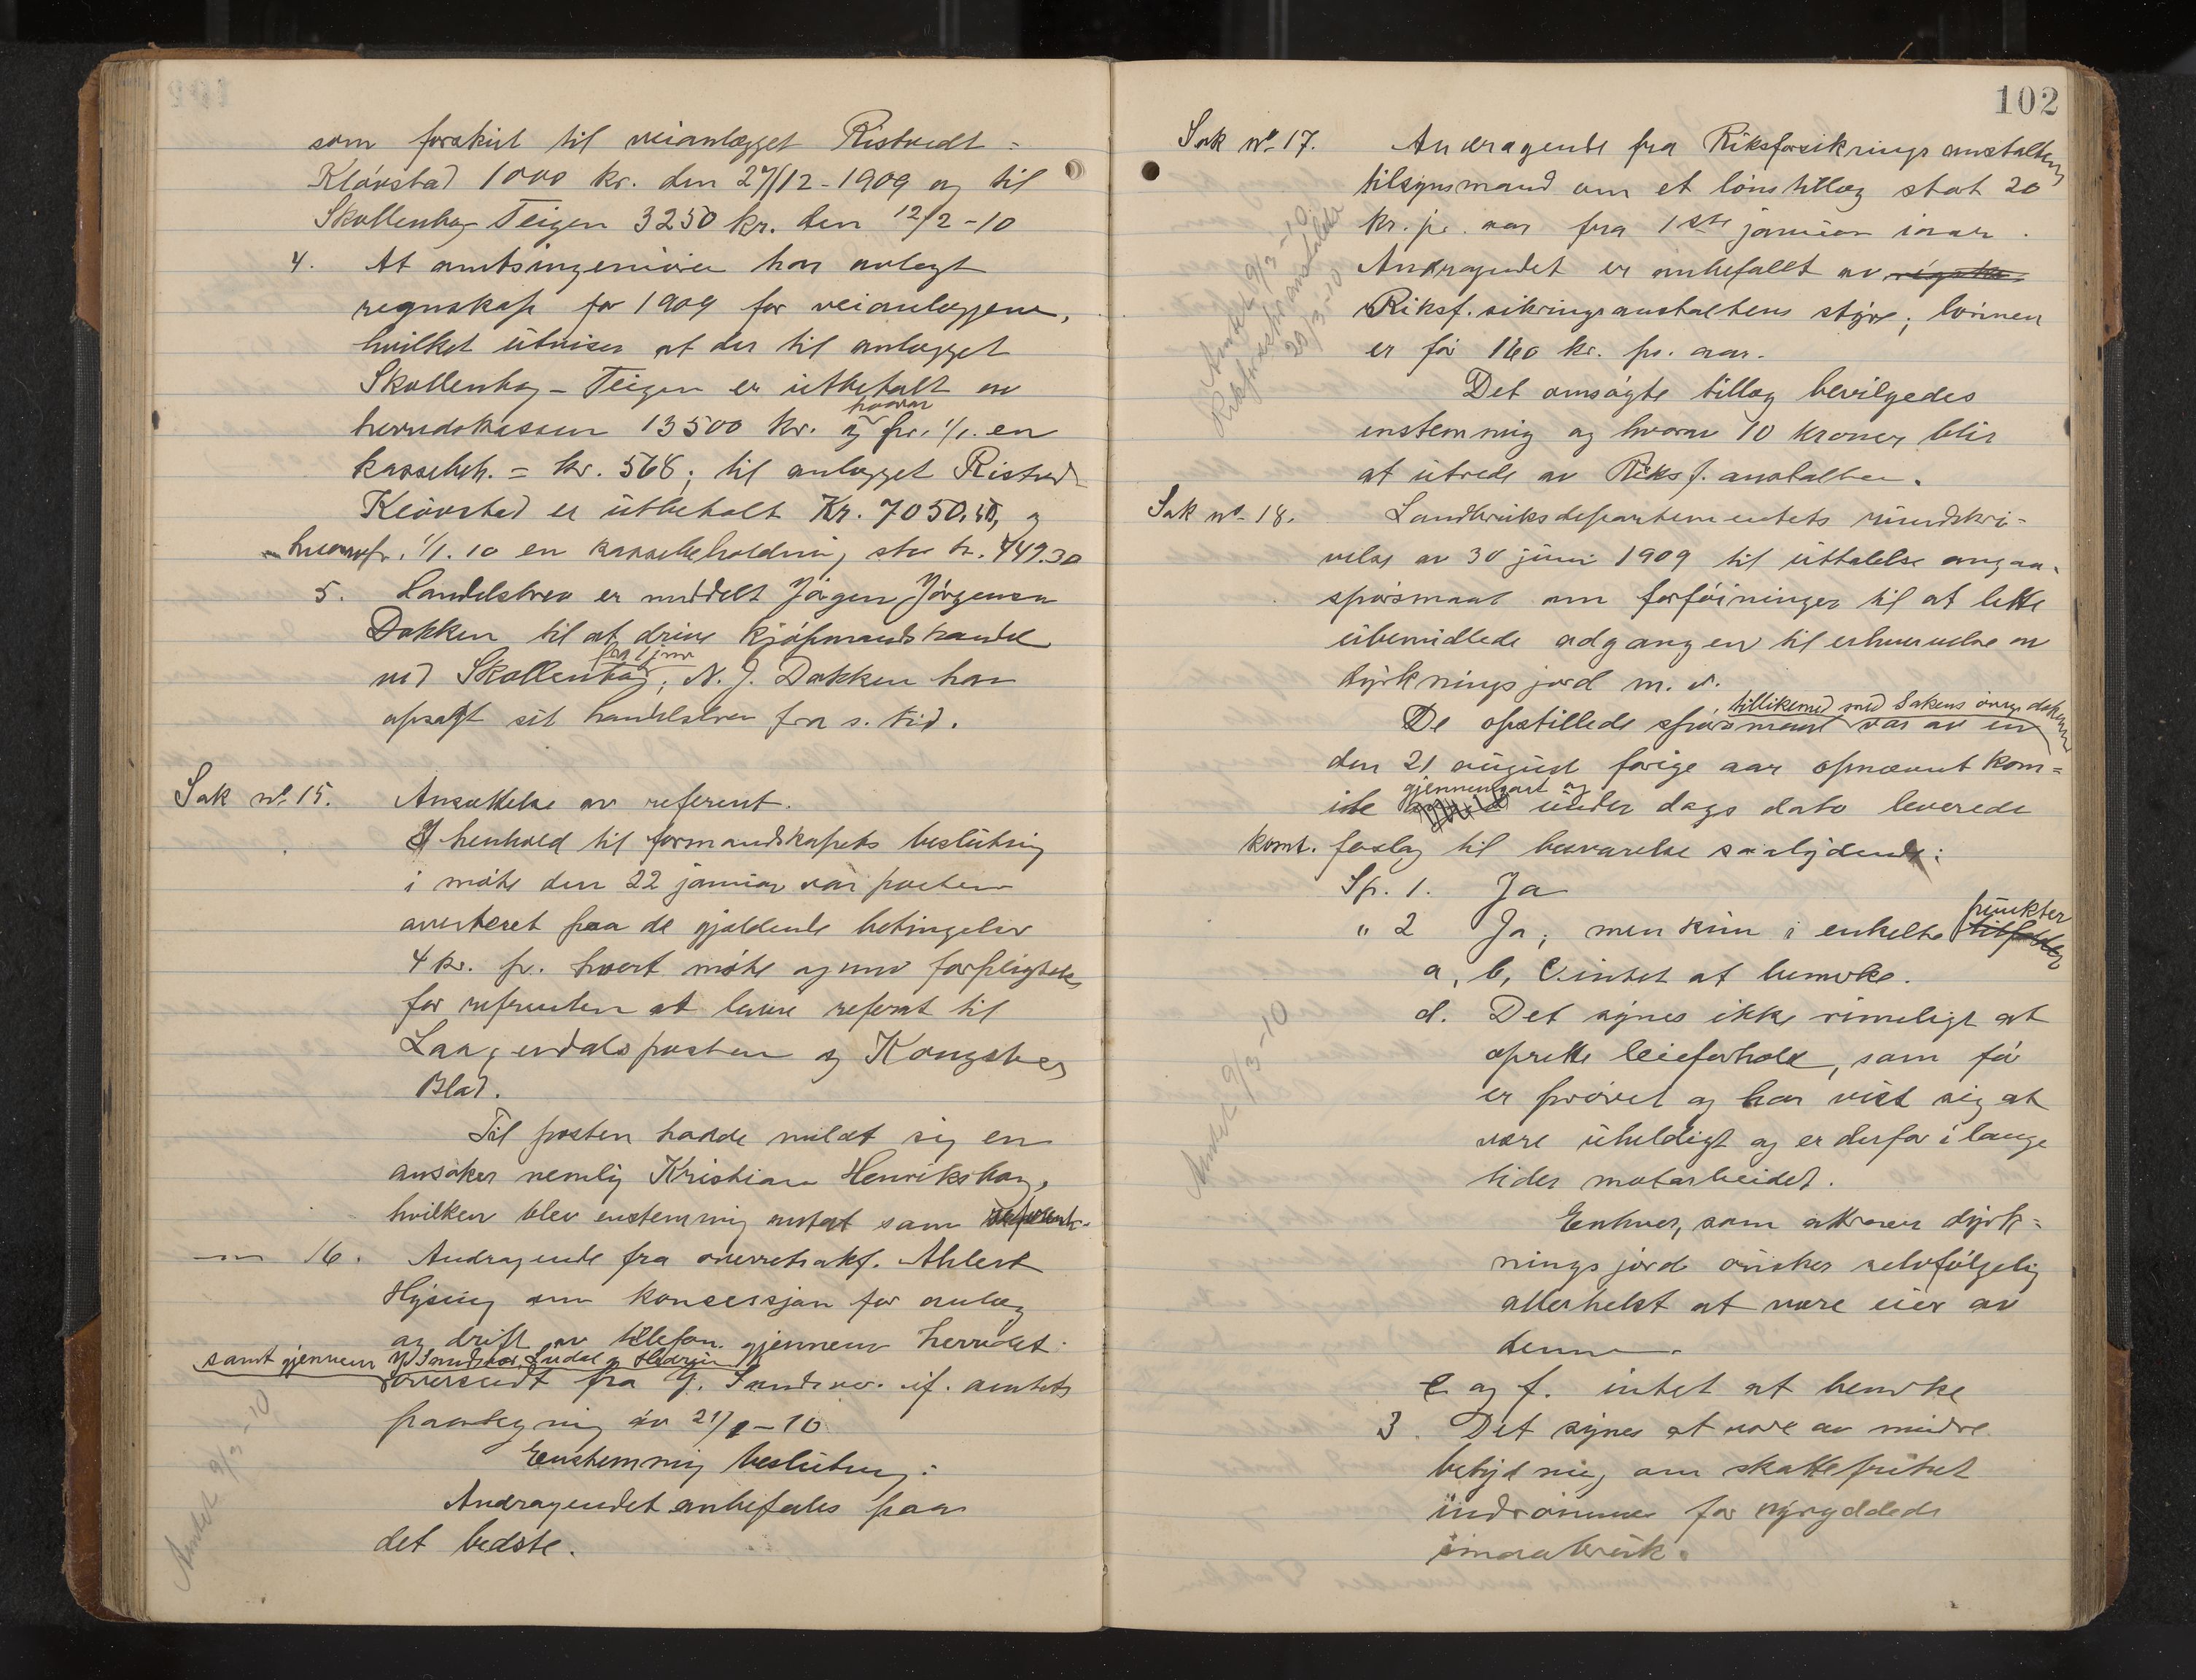 som forskut til veianlægget Ristvedt =
Klövstad 1000 kr. den 27/12-1909 og til
Skollenborg-Teigen 3250 kr. den 12/2-10
4. At amtsingeniören har avlagt
regnskap for 1909 for veianlæggene,
hvilket utviser at der til anlægget
Skollenborg - Teigen er utbetalt av
hvorav
herredskassen 13500 kr. og pr. 1/1. en
kassebeh. = kr. 568; til anlægget Ristvedt
Klövstad er utbetalt Kr. 7050,50, og
hvorav pr. 1/1. 10 en kassebeholdning stor kr. 749.30
5. Handelsbrev er meddelt Jörgen Jörgensen
Dokken til at drive kjöpmandshandel
fra 1 jan
ved Skollenborg; N. J. Dokken har
opsagt sit handelsbrev fra s. tid.
Sak no. 15. Ansættelse av referent.
I henhold til formandskapets beslutning
i möte den 22 januar var posten
averteret paa de gjældende betingelser
4 kr. pr. hvert möte og med forpligtelse
for referenten at levere referat til
Laagendalsposten og Kongsberg
Blad.
Til posten hadde meldt sig en
ansöker nemlig Kristian Henriksborg,
hvilken blev enstemmig antat som referent.
— " — 16. Andragende fra overretssakf. Ahlert
Hysing om konsessjon for anlæg
og drift av telefon gjennem herredet
samt gjennem Y. Sandsvær, Ludal og Hedrum
oversendt fra Y. Sandsvær if. amtets
paategning av 21/1-10
Enstemmig beslutning:
Andragendet anbefales paa
det bedste.
Amtet 9/3-10
102
Sak no. 17. Andragende fra Riksforsikringsanstaltens
tilsynsmand om et lönstillæg stort 20
kr. pr. aar fra 1ste januar iaar.
Andragendet er anbefallt av
Riksf.sikringsanstaltens styre; lönnen
er för 160 kr. pr. aar.
Det ansögte tillæg bevilgedes
enstemmig og hvorav 10 kroner blir
at utrede av Riksf. anstalten.
Amtet 9/3-10.
Riksforsikringsanstalten
20/3-10
Sak no. 18. Landbruksdepartementets rundskri=
velse av 30 juni 1909 til uttalelse angaa.
spörsmaal om forföininger til at lette
ubemidlede adgangen til erhvervelse av
dyrkningsjord m. v.
tillikemed med sakens övrige dokum
De opstillede spörsmaal var av en
den 21 august forige aar opnævnt kom=
gjennemgaat og
ite under dags dato leverede
komt. forslag til besvarelse saalydende:
Sp. 1. Ja
" 2 Ja; men kun i enkelte punkter
a, b, c. intet at bemerke.
d. Det synes ikke rimeligt at
oprette leieforhold, som för
er prövet og har vist sig at
være uheldigt og er derfor i lange
tider motarbeidet.
Enhver, som attraar dyrk=
ningsjord önsker selvfölgelig
allerhelst at være eier av
denne.
e og f. intet at bemerke
3. Det synes at være av mindre
betydning om skattefrihet
indrömmes for nyryddede
smaabruk.
Amtet 9/3-10